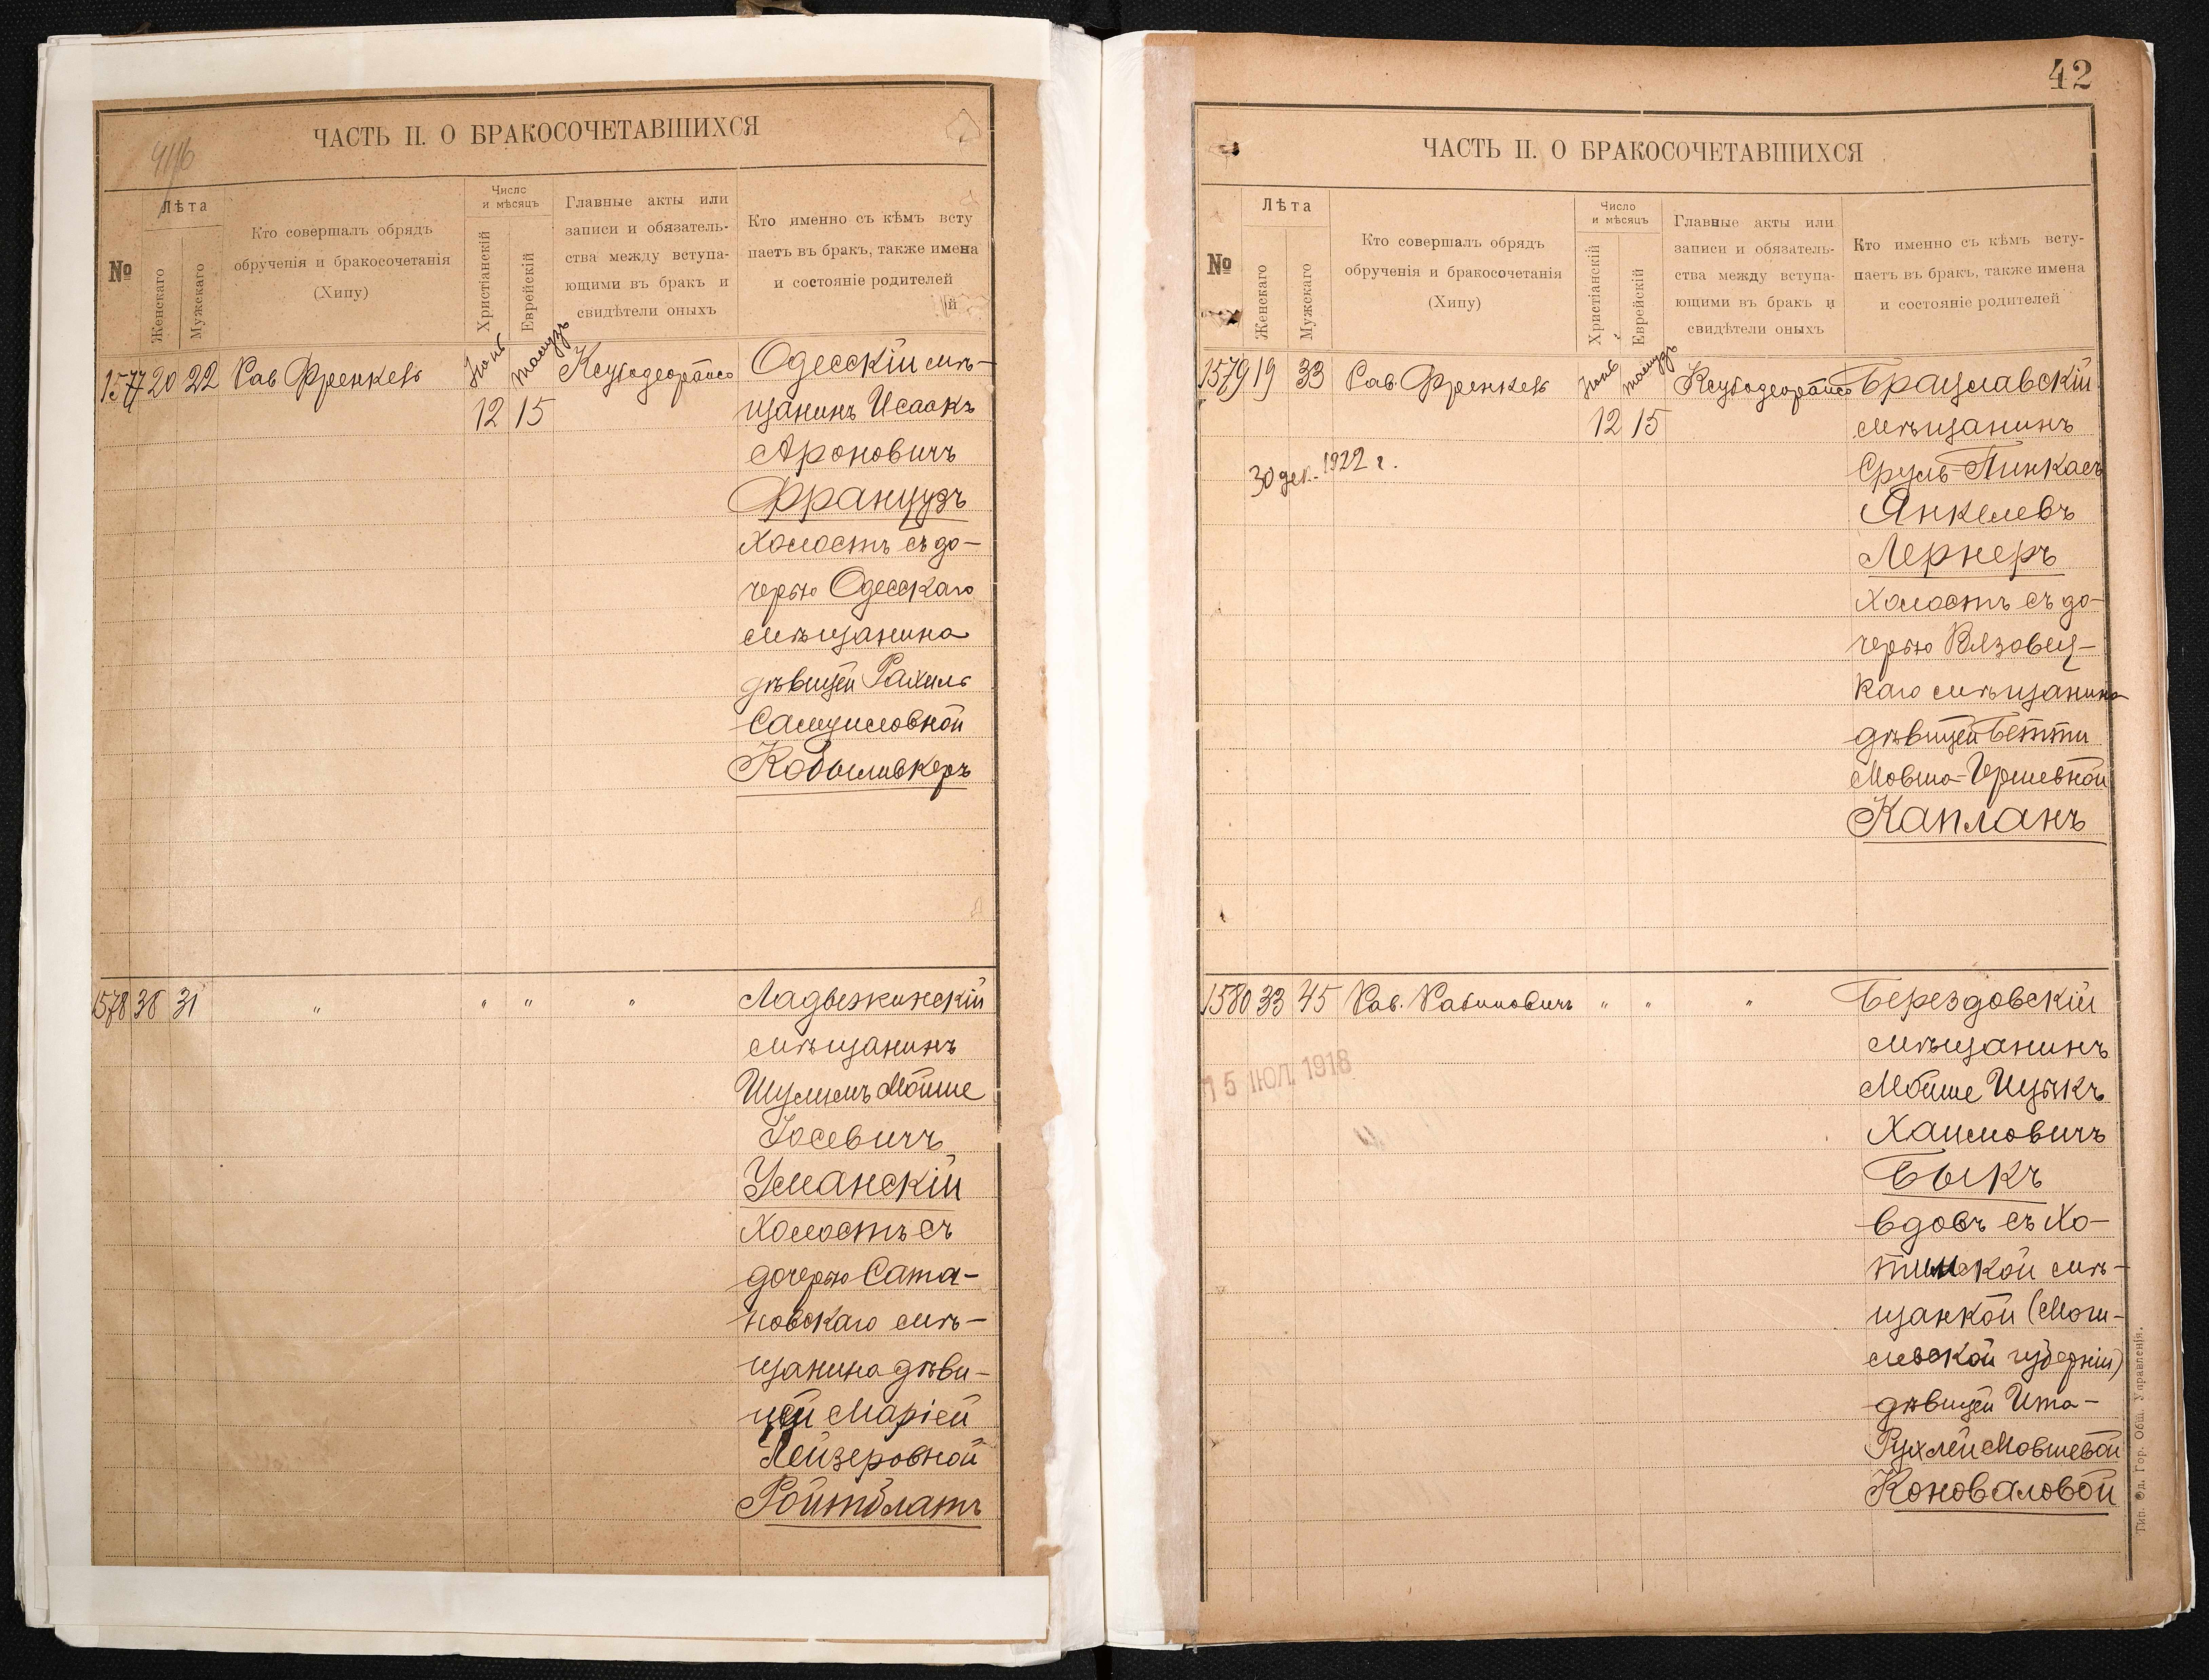 ЧАСТЬ II. О БРАКОСОЧЕТАВШИХСЯ
№
Лѣта
Женскаго
Мужскаго
Кто совершалъ обрядъ
обрученія и бракосочетанія
(Хипу)
Число
и мѣсяцъ
Христіанскій
Еврейскій
Главные акты или
записи и обязатель-
ства между вступа-
ющими въ бракъ и
свидѣтели оныхъ
Кто именно съ кѣмъ всту
паетъ въ бракъ, также имена
и состояніе родителей
й
1577 20 22 Рав Френкель
Іюнь
12
тамузъ
15
Одесскій мѣ-
щанинъ Исаакъ
Ароновичъ
Французъ
холостъ съ до-
черью Одесскаго
мѣщанина
дѣвицей Рахиль
Самуиловной
Кобыливкеръ
1578 38 31 " " " "
Ладыжинскій
мѣщанинъ
Шулимъ Мойше
Іосевичъ
Уманскій
холостъ съ
дочерью Сата-
новскаго мѣ-
щанина дѣви-
цей Маріей
Лейзеровной
Ройтблатъ
42
ЧАСТЬ II. О БРАКОСОЧЕТАВШИХСЯ
№
Лѣта
Женскаго
Мужскаго
Кто совершалъ обрядъ
обрученія и бракосочетанія
(Хипу)
Число
и мѣсяцъ
Христіанскій
Еврейскій
Главные акты или
записи и обязатель-
ства между вступа-
ющими въ бракъ и
свидѣтели оныхъ
Кто именно съ кѣмъ всту-
паетъ въ бракъ, также имена
и состояніе родителей
1579 19 33 Рав. Френкель
Іюнь
12
тамузъ
15
30 дек. 1922 г.
Брацлавскій
мѣщанинъ
Сруль-Пинкасъ
Янкелевъ
Лернеръ
холостъ съ до-
черью Вязовец-
каго мѣщанина
дѣвицей Бетти
Мовша-Гершевной
Капланъ
1580 33 45 Рав. Рабиновичъ " " "
15 ІЮЛ. 1918
Берездовскій
мѣщанинъ
Мойше Ицыкъ
Хаимовичъ
Быкъ
вдовъ съ Хо-
тимской мѣ-
щанкой (Моги-
левской губерніи)
дѣвицей Ита-
Рухлей Мовшевой
Коноваловой
Тип. Од. Гор. Общ. Управленія.